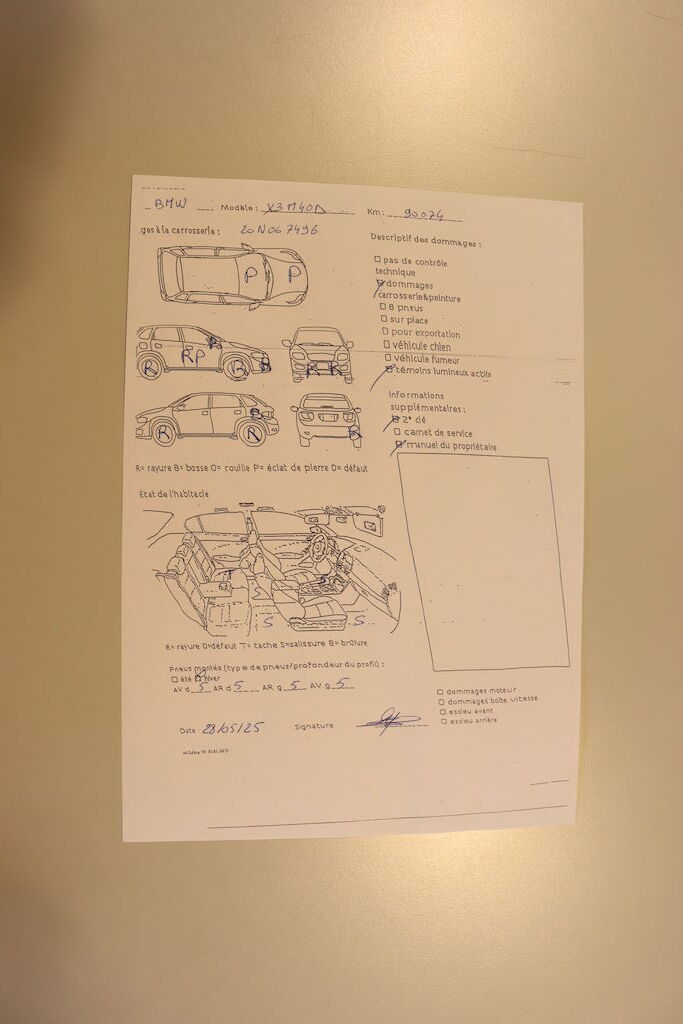 BMW Modèle : X3 M40D Km : 90074
ges à la carrosserie : 20N067496
Descriptif des dommages :
pas de contrôle
technique
dommages
carrosserie&peinture
8 pneus
sur place
pour exportation
véhicule chien
véhicule fumeur
témoins lumineux actifs
P P
R RP R B B
R R
R R B
R
Informations
supplémentaires :
2e clé
carnet de service
manuel du propriétaire
R= rayure B= bosse O= rouille P= éclat de pierre D= défaut
Etat de l'habitacle
S
S S
R= rayure D=défaut T= tache S=salissure B= brûlure
Pneus montés (type de pneus/profondeur du profil) :
été hiver
AV d 5 AR d 5 AR g 5 AV g 5
dommages moteur
dommages boîte vitesse
essieu avant
essieu arrière
Date 28/05/25 Signature